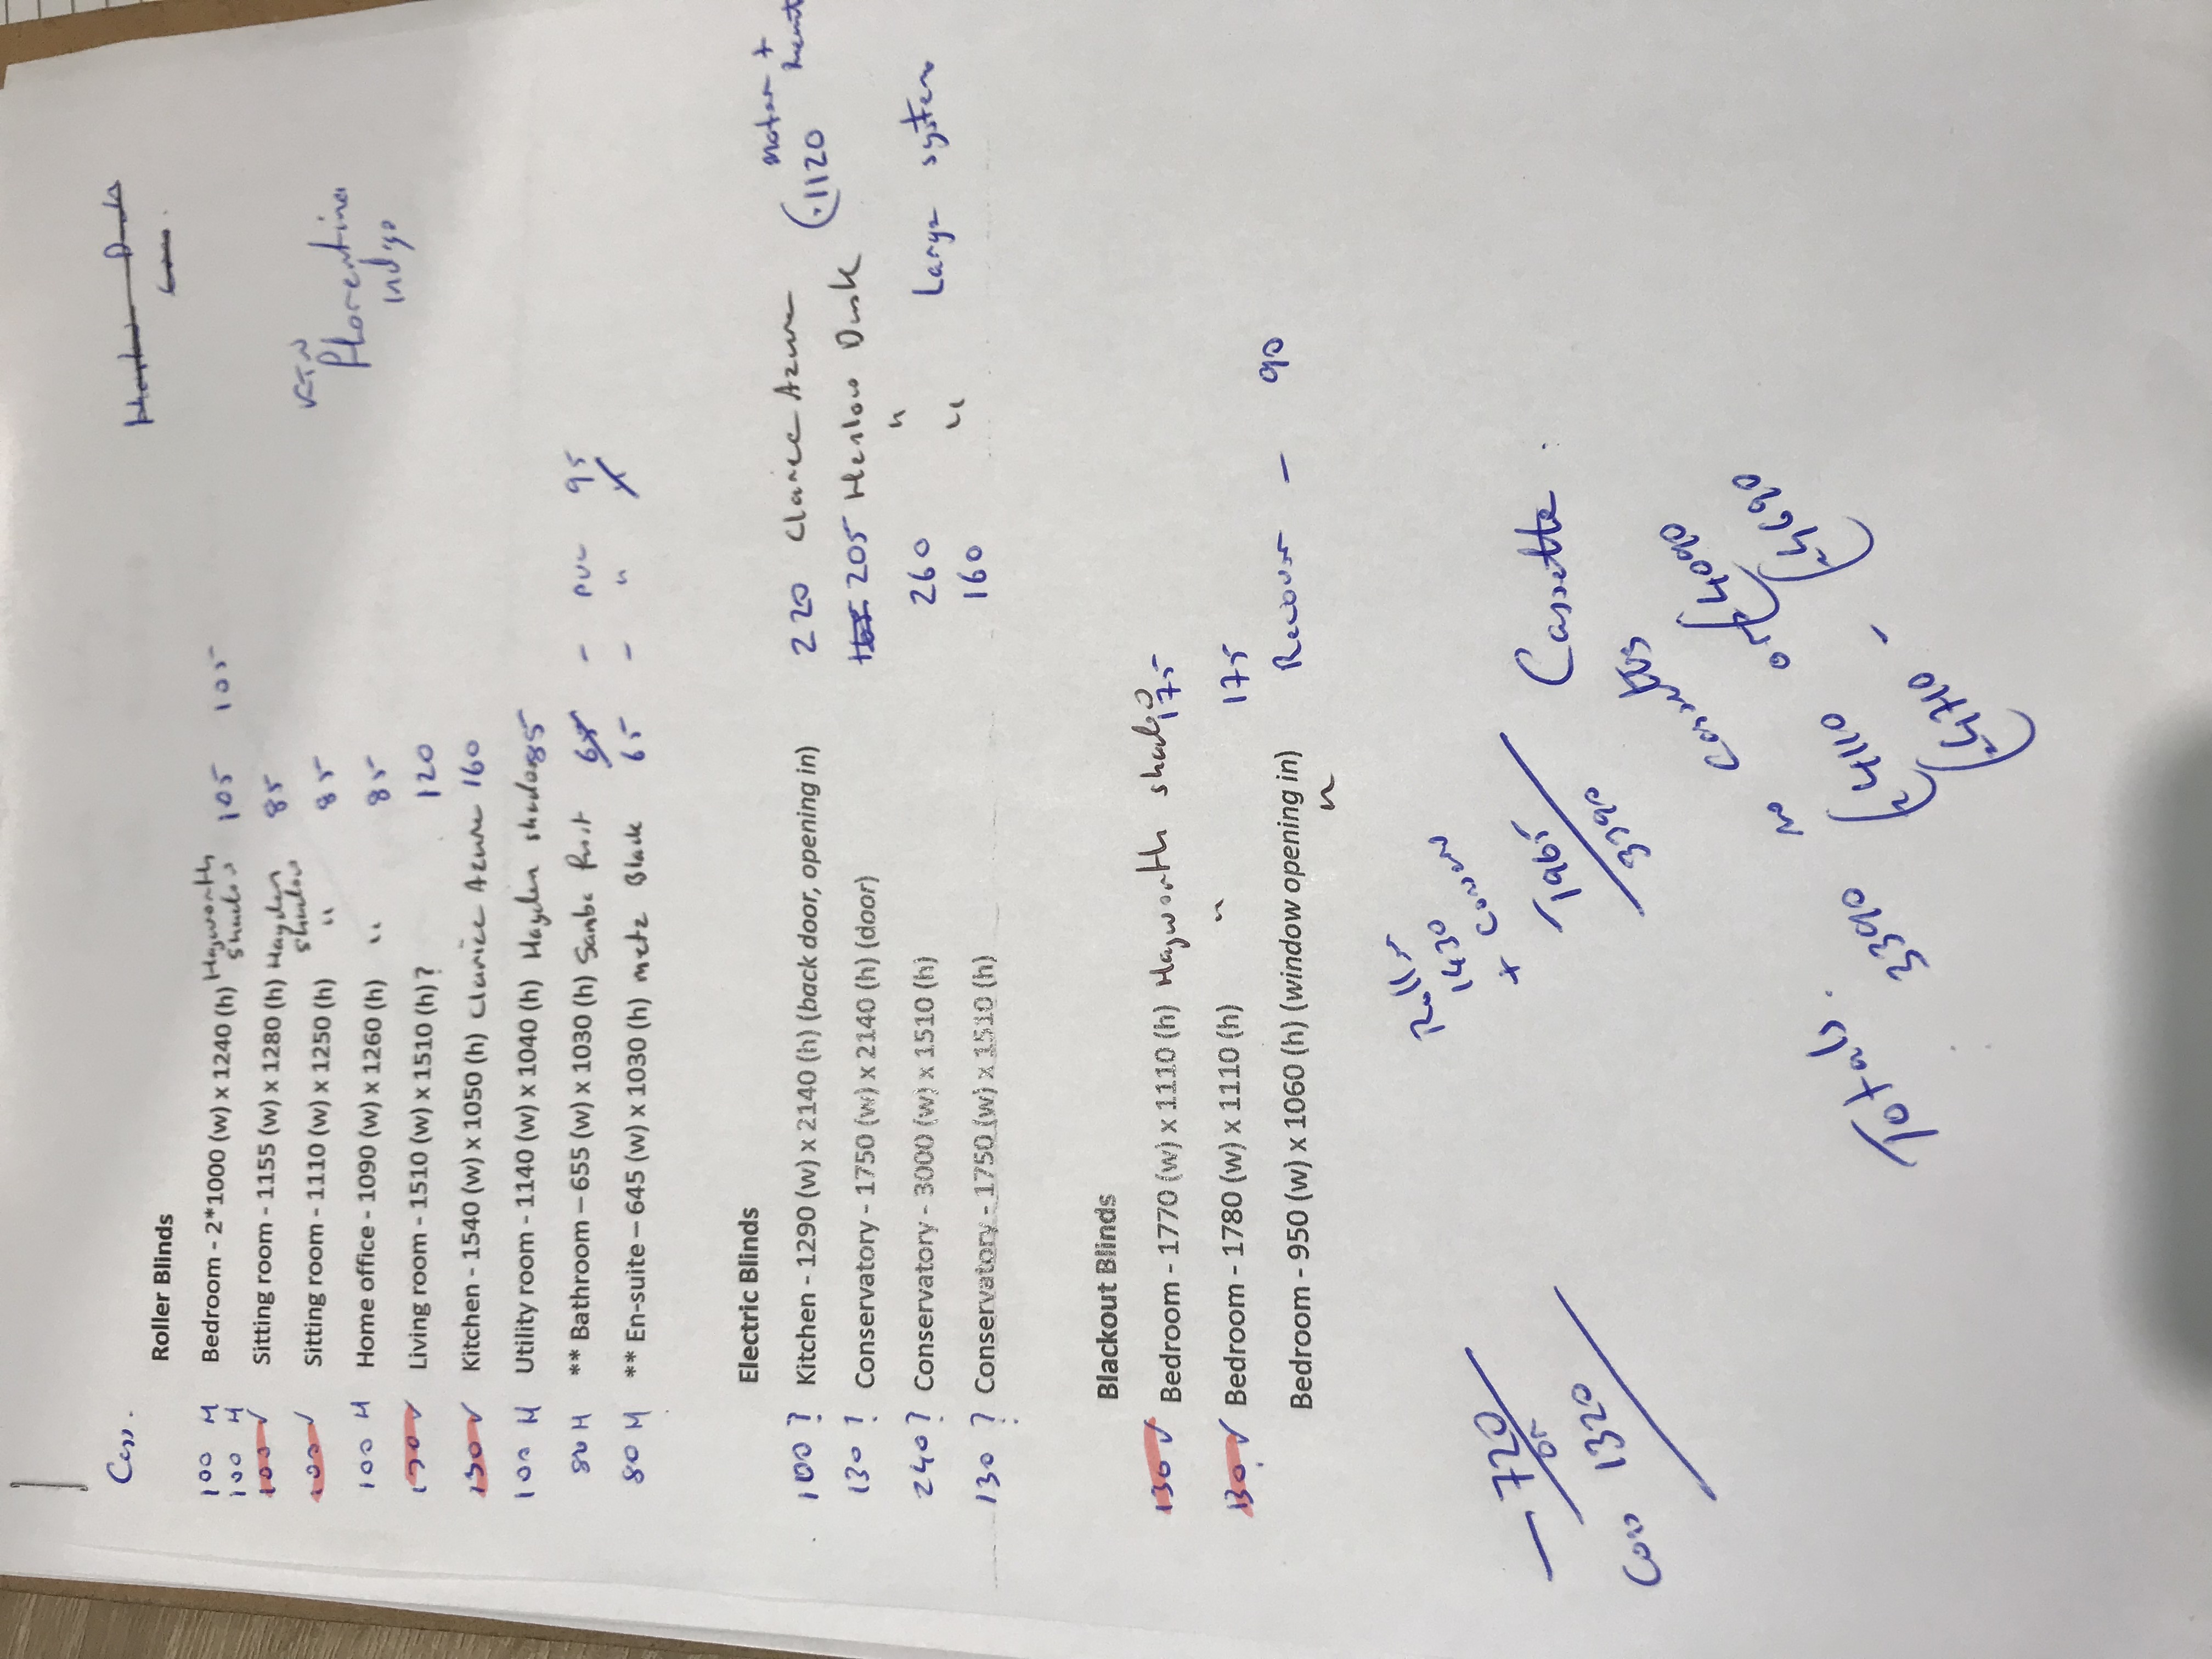 Cass.
Roller Blinds
100 H Bedroom - 2*1000 (w) x 1240 (h) Hayworth shadow 105 105
100 H
100 ✓ Sitting room - 1155 (w) x 1280 (h) Hayden shadow 85
100 ✓ Sitting room - 1110 (w) x 1250 (h) " 85
100 H Home office - 1090 (w) x 1260 (h) " 85
Florentina
Indigo
130 ✓ Living room - 1510 (w) x 1510 (h) ? 120
130 ✓ Kitchen - 1540 (w) x 1050 (h) Clarice Azure 160
100 H Utility room - 1140 (w) x 1040 (h) Hayden shadow 85
80 H ** Bathroom – 655 (w) x 1030 (h) 65 - PVC 95
80 H ** En-suite – 645 (w) x 1030 (h) metz Black 65 - "
Electric Blinds
motor +
100 ? Kitchen - 1290 (w) x 2140 (h) (back door, opening in) 220 Clarice Azure (1120
130 ? Conservatory - 1750 (w) x 2140 (h) (door) 205 Henlow Dusk
240 ? Conservatory - 3000 (w) x 1510 (h) 260 " Large system
130 ? Conservatory - 1750 (w) x 1510 (h) 160 "
Blackout Blinds
130 ✓ Bedroom - 1770 (w) x 1110 (h) Hayworth shadow 175
130 ✓ Bedroom - 1780 (w) x 1110 (h) " 175
Bedroom - 950 (w) x 1060 (h) (window opening in) Recover - 90
"
Rolls
1430
+ Conserv
- 720 1965 Cassette.
or
Con 1320 3390
or (4090
(4690
Totals. 3390 (4110 -
(4710